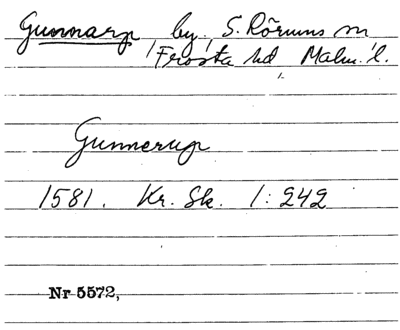 Gunnarp, by, S. Rörums sn
Frosta hd Malm. l.
Gunnerup
1581. Kr. Sk. 1:242
Nr 5572,